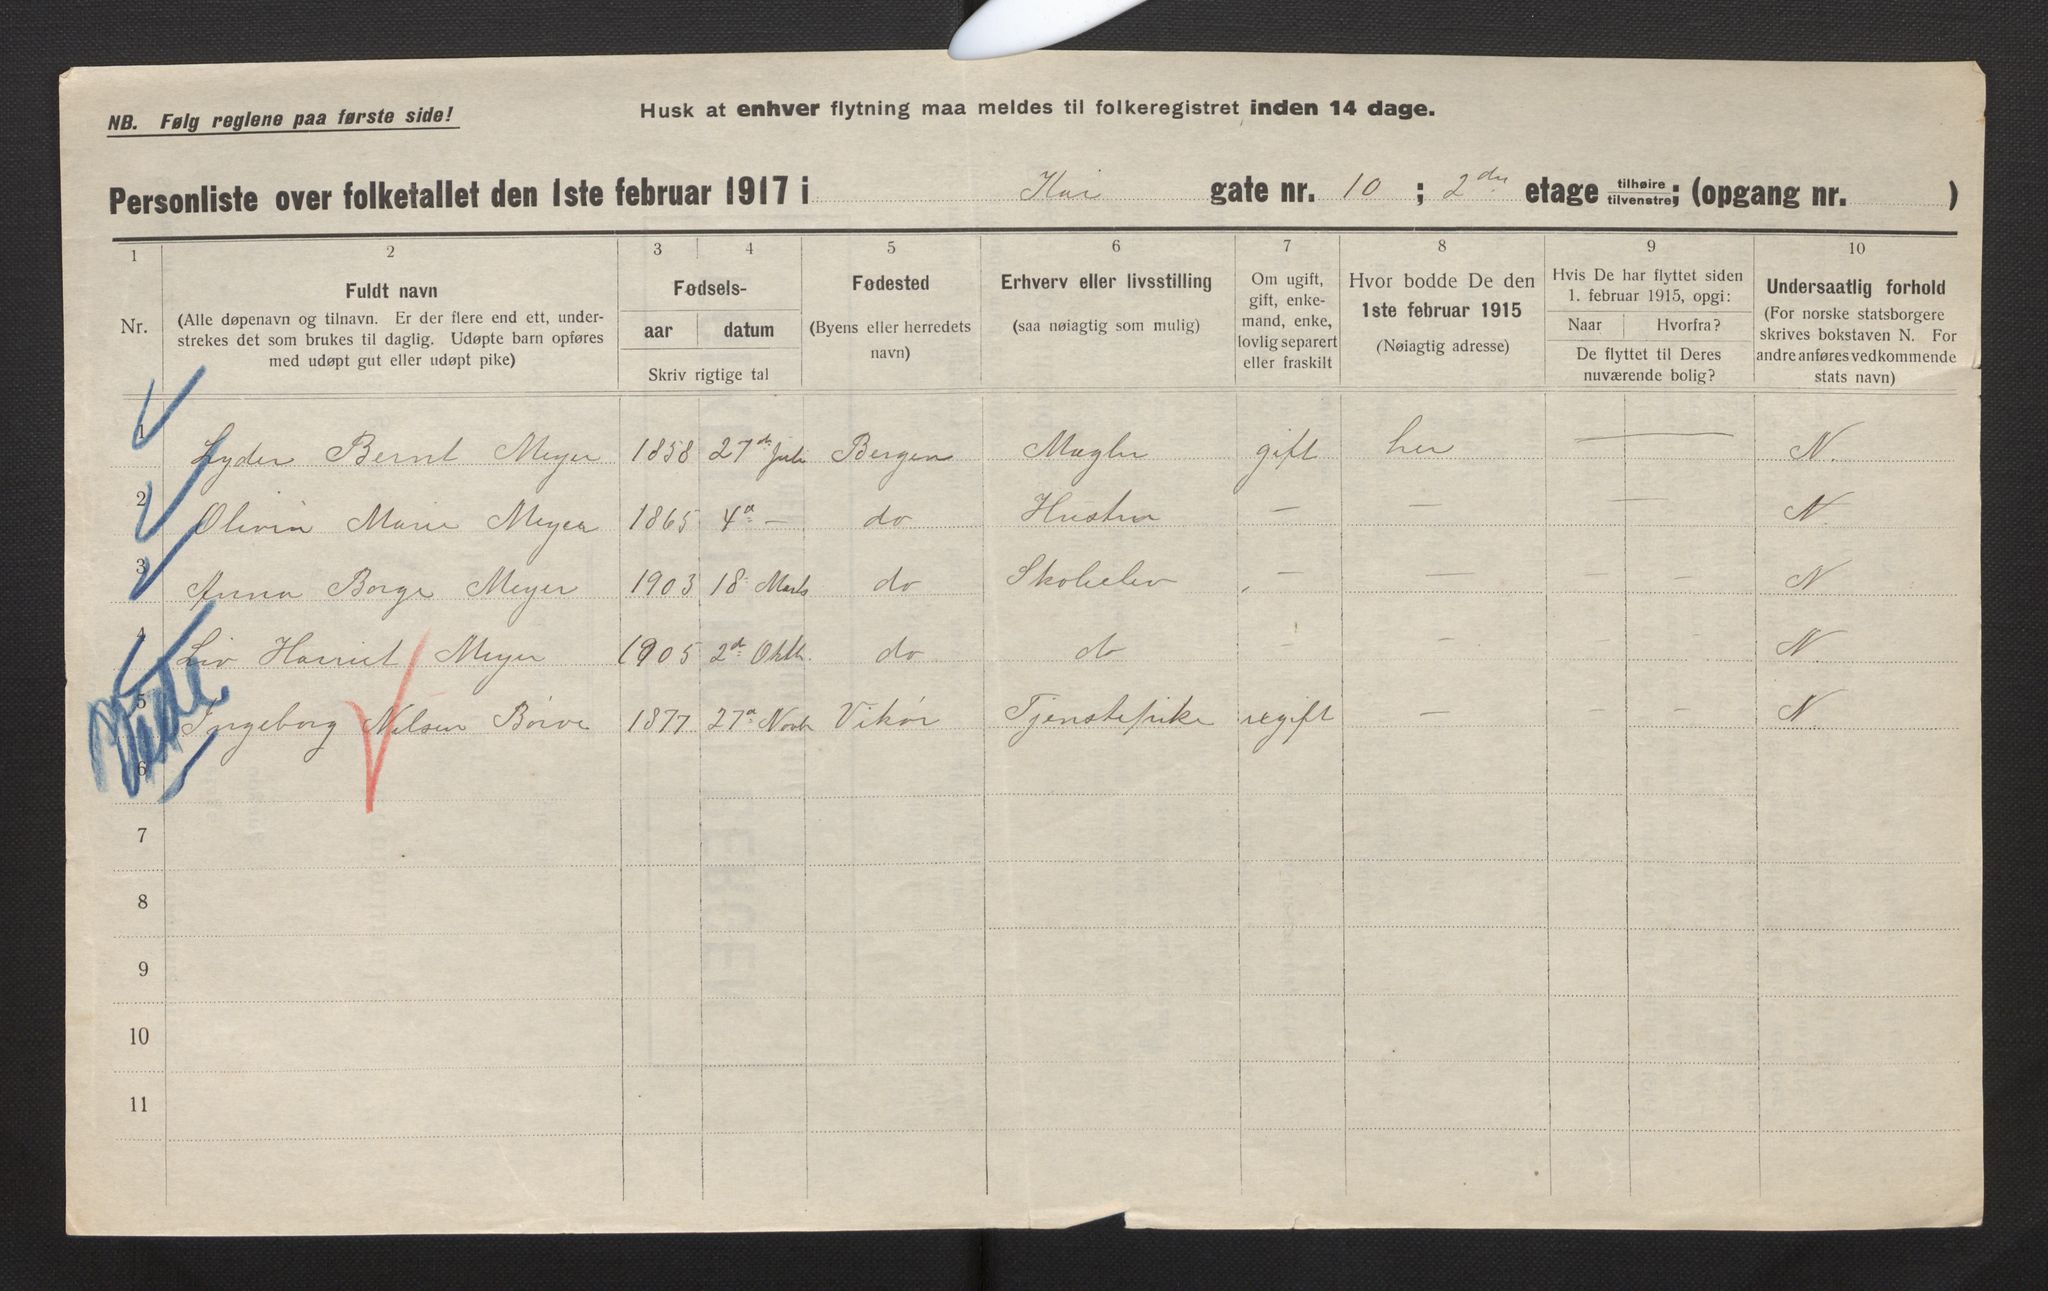 NB. Følg reglene paa første side!
Husk at enhver flytning maa meldes til folkeregistret inden 14 dage.
Personliste over folketallet den 1ste februar 1917 i Kai gate nr. 10 ; 2den etage tilhøire tilvenstre; (opgang nr. )
1 2 3 4 5 6 7 8 9 10
Nr.
Fuldt navn
(Alle døpenavn og tilnavn. Er der flere end ett, under-
strekes det som brukes til daglig. Udøpte barn opføres
med udøpt gut eller udøpt pike)
Fødsels-
aar datum
Skriv rigtige tal
Fødested
(Byens eller herredets
navn)
Erhverv eller livsstilling
(saa nøiagtig som mulig)
Om ugift,
gift, enke-
mand, enke,
lovlig separert
eller fraskilt
Hvor bodde De den
1ste februar 1915
(Nøiagtig adresse)
Hvis De har flyttet siden
1. februar 1915, opgi:
Naar Hvorfra?
De flyttet til Deres
nuværende bolig?
Undersaatlig forhold
(For norske statsborgere
skrives bokstaven N. For
andre anføres vedkommende
stats navn)
1 Lyder Bernt Meyer 1858 27de Juli Bergen Mægler gift her — N.
2 Olivia Marie Meyer 1865 4d — do Hustru — — — N.
3 Anna Borge Meyer 1903 18 Marts do Skoleelev — — — — N
4 Liv Harriet Meyer 1905 2d Oktb. do do — — — — N.
5 Ingeborg Nilsen Börve 1877 27d Novb Vikör Tjenstepike ugift — — — N.
6
7
8
9
10
11